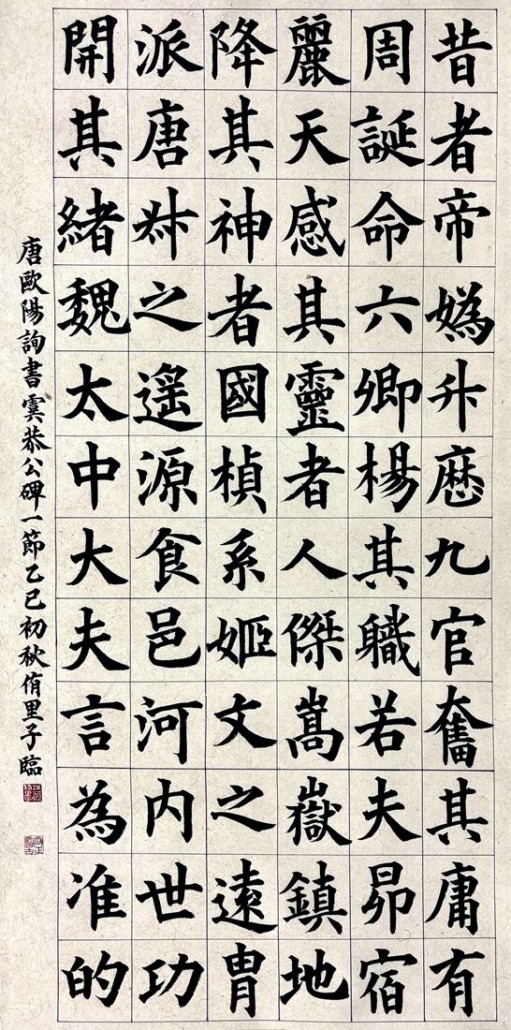 昔者帝媯升歷九官奮其庸有
周誕命六卿楊其職若夫昴宿
麗天感其靈者人傑嵩嶽鎮地
降其神者國楨系姬文之遠胄
派唐叔之遥源食邑河内世功
開其緒魏太中大夫言為准的
唐歐陽詢書虞恭公碑一節乙巳初秋侑里子臨